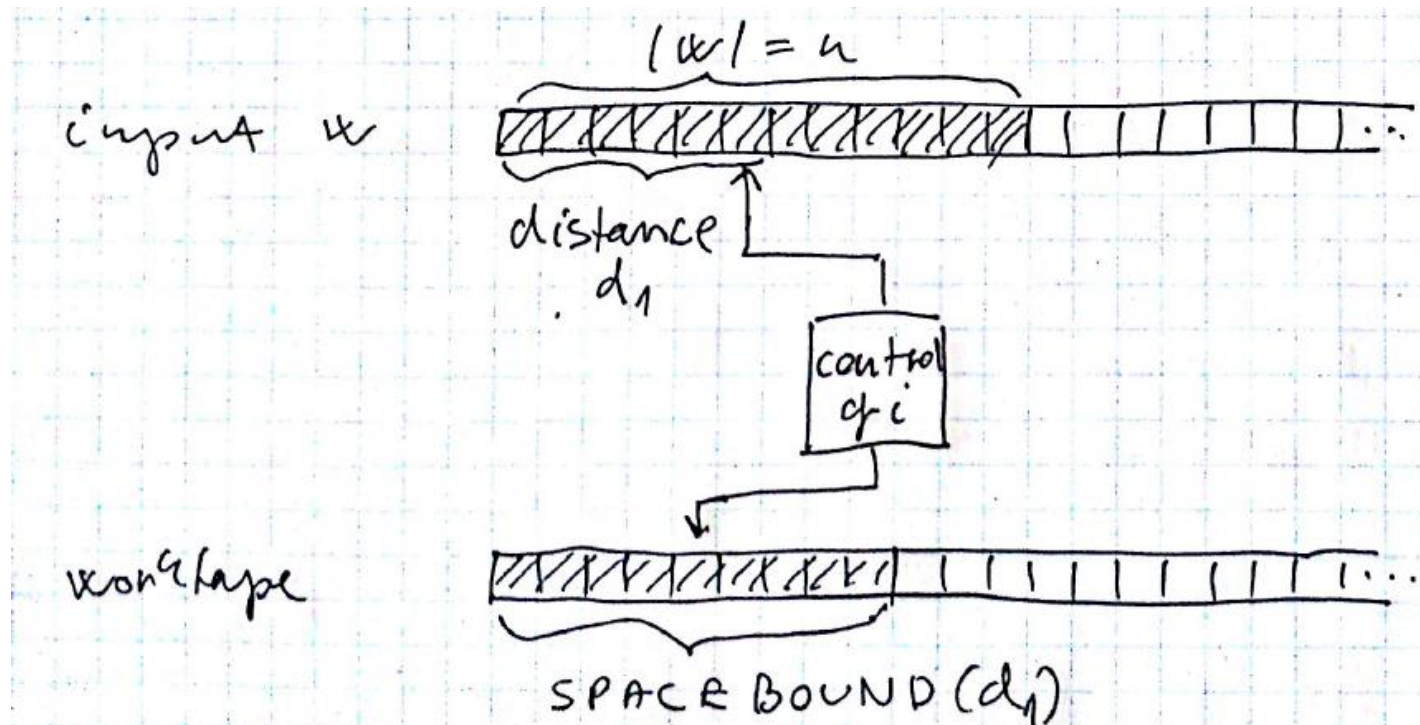 |w| = n
input w
distance
d₁
control
qi
worktape
SPACE BOUND (d₁)